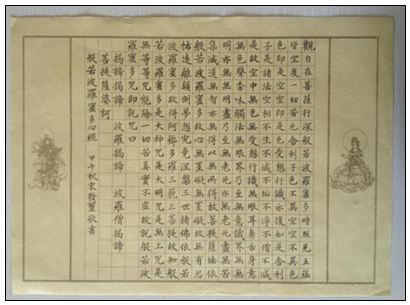 觀自在菩薩行深般若波羅蜜多時照見五蘊
皆空度一切苦厄舍利子色不異空空不異色
色即是空空即是色受想行識亦復如是舍利
子是諸法空相不生不滅不垢不淨不增不減
是故空中無色無受想行識無眼耳鼻舌身意
無色聲香味觸法無眼界乃至無意識界無無
明亦無無明盡乃至無老死亦無老死盡無苦
集滅道無智亦無得以無所得故菩提薩埵依
般若波羅蜜多故心無罣礙無罣礙故無有恐
怖遠離顛倒夢想究竟涅槃三世諸佛依般若
波羅蜜多故得阿耨多羅三藐三菩提故知般
若波羅蜜多是大神咒是大明咒是無上咒是
無等等咒能除一切苦真實不虛故說般若波
羅蜜多咒即說咒曰
揭諦揭諦 波羅揭諦 波羅僧揭諦
菩提薩婆訶
般若波羅蜜多心經 甲午秋宋敬書